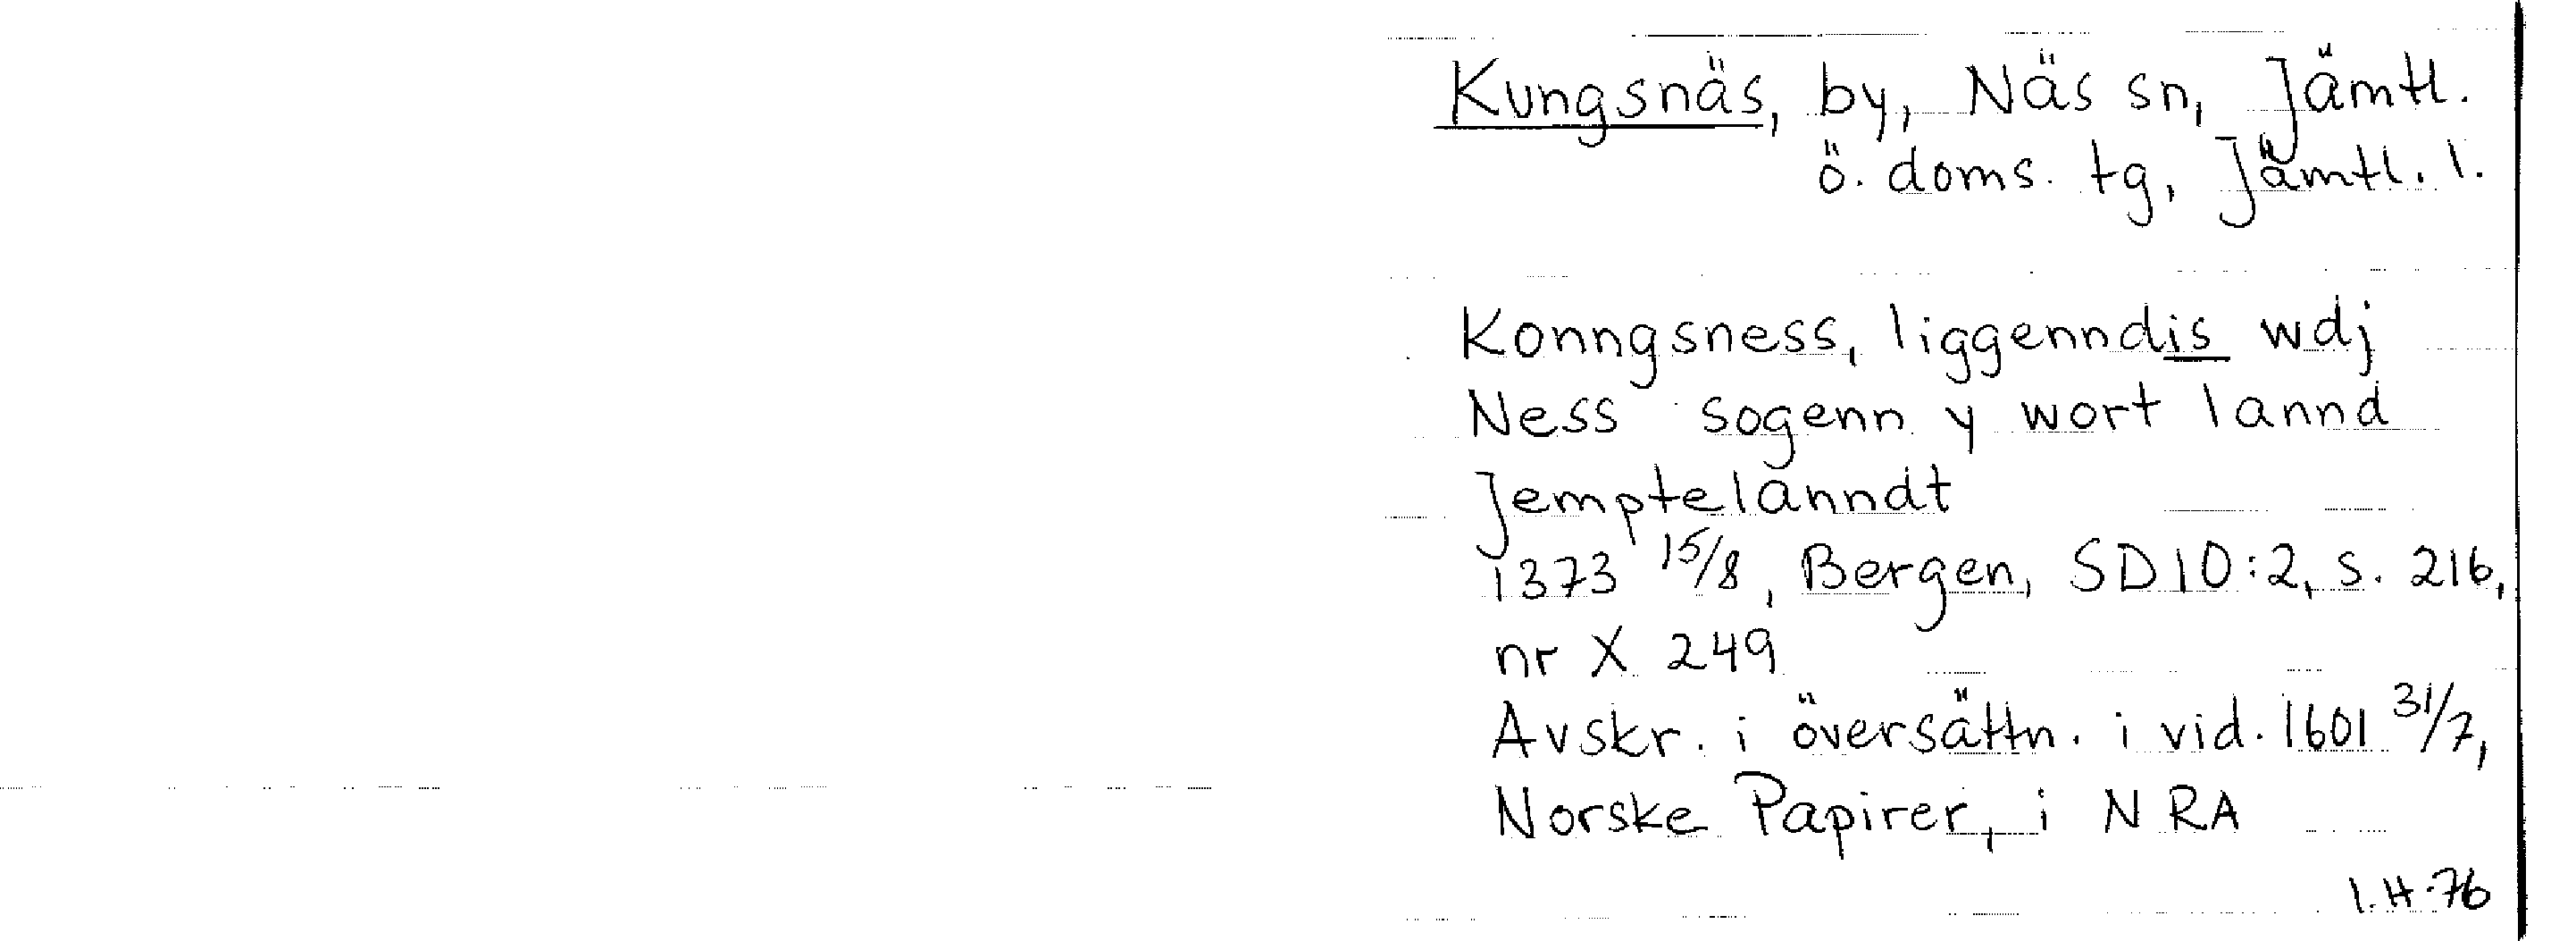 Kungsnäs, by, Näs sn, Jämtl.
ö. doms. tg, Jämtl. l.
Konngsness, liggenndis wdj
Ness sogenn y wort lannd
Jemptelanndt
1373 15/8, Bergen, SD10:2, s. 216,
nr X 249
Avskr. i översättn. i vid. 1601 31/7,
Norske Papirer, i NRA
I.H.76